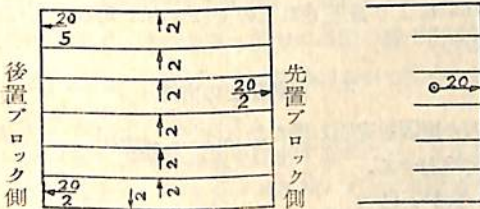 後置ブロック側
20
5
2
2
2
2
2
2
20
2
20
2
2
先置ブロック側
20